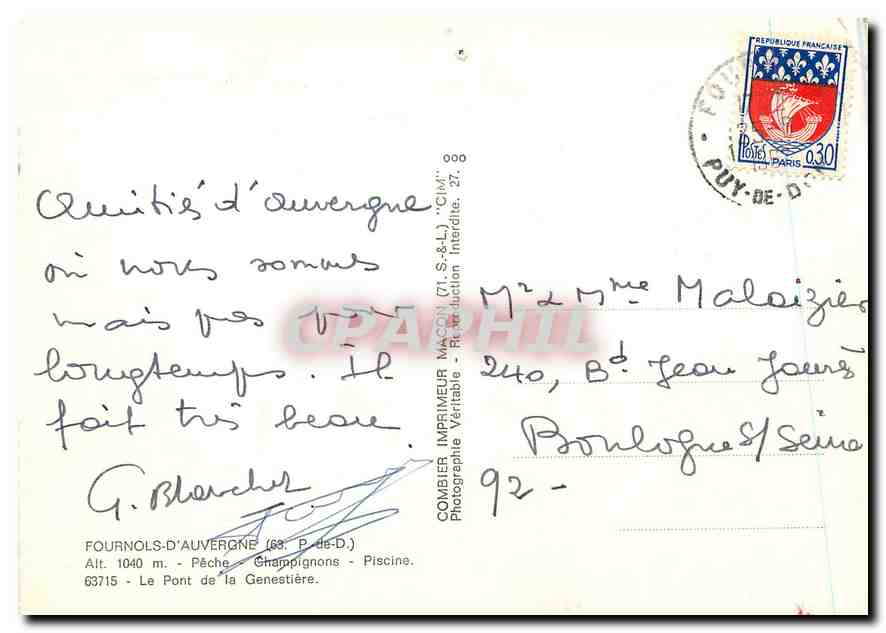 Amitiés d'Auvergne
où nous sommes
mais pas pour
longtemps. Il
fait très beau.
G. Blanchet
FOURNOLS-D'AUVERGNE (63. P.-de-D.)
Alt. 1040 m. - Pêche - Champignons - Piscine.
63715 - Le Pont de la Genestière.
COMBIER IMPRIMEUR MACON (71. S.-&-L.) "CIM"
Photographie Véritable - Reproduction Interdite. 27.
CPAPHIL
REPUBLIQUE FRANÇAISE
POSTES PARIS 0,30
FOU
PUY-DE-D
Mr & Mme Malaizier
240, Bd. Jean Jaurès
Boulogne s/ Seine
92 -